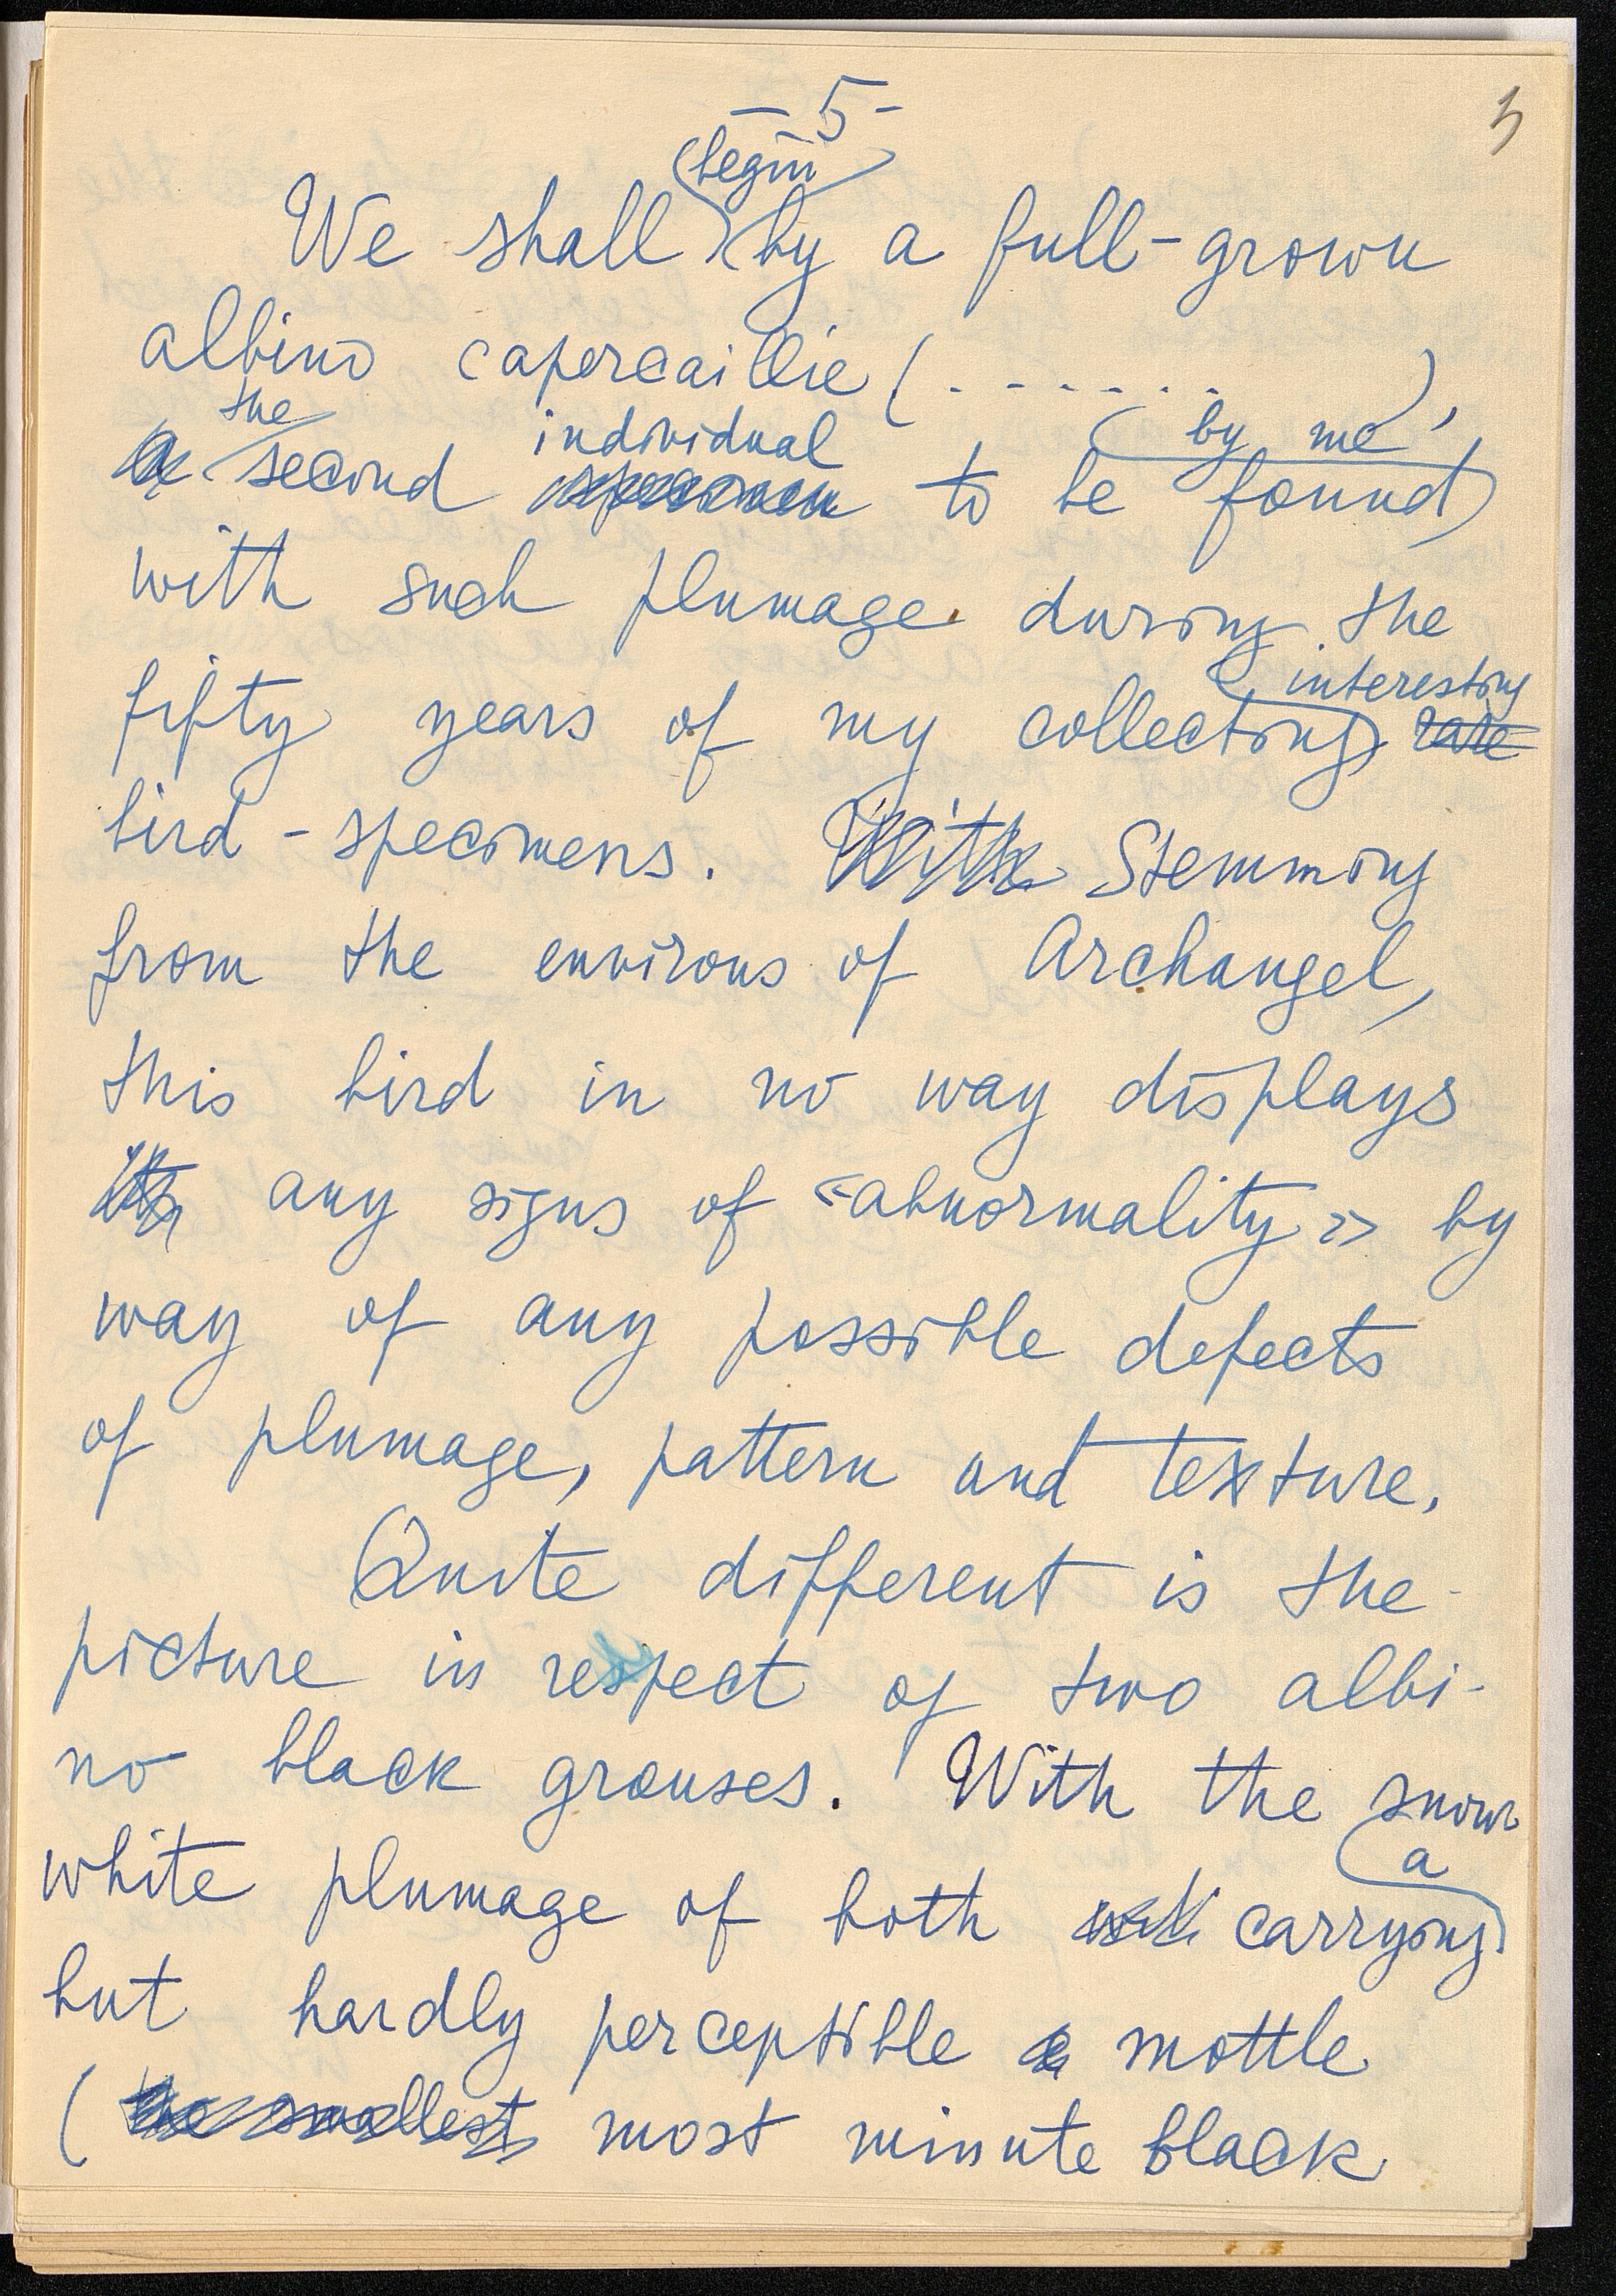 - 5 -
5
begin
We shall by a full-grown
albino capercaillie (. . . . . . .),
the individual by me,
a second specimen to be found
with such plumage during the
interesting
fifty years of my collecting rare
bird-specimens. With Stemming
from the environs of Archangel,
this bird in no way displays
its any signs of «abnormality» by
way of any possible defects
of plumage, pattern and texture.
Quite different is the
picture in respect of two albi-
no black grouses. With the snow
a
white plumage of both carrying
but hardly perceptible a mottle
(the smallest most minute black